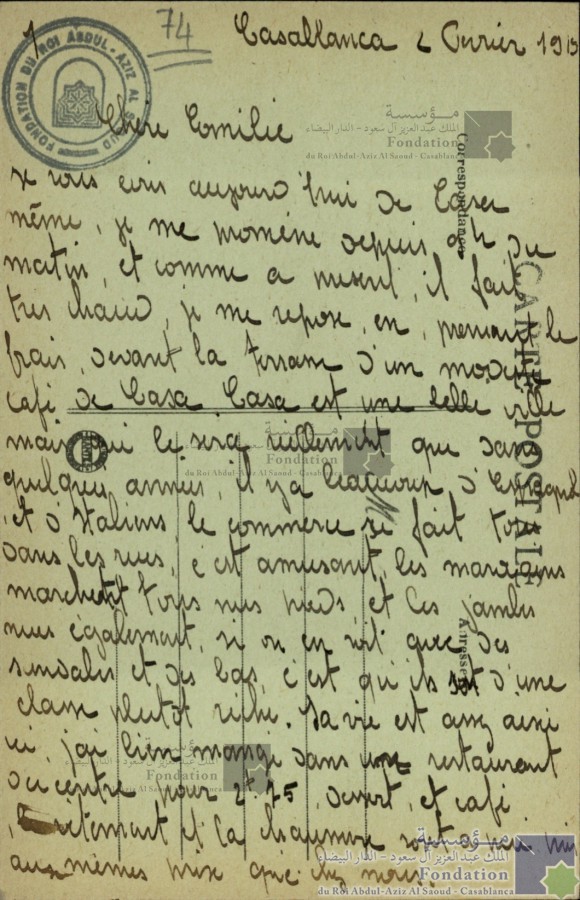 1
74
FONDATION DU ROI ABDUL-AZIZ AL SAOUD
Casablanca 2 Février 191
Chère Emilie
مؤسسة
الملك عبدالعزيز آل سعود - الدار البيضاء
Fondation
du Roi Abdul-Aziz Al Saoud - Casablanca
Correspondance
CARTE POSTALE
Adresse
je vous écris aujourd'hui de Casa
même, je me promène depuis 9h du
matin, et comme a present, il fait
tres chaud, je me repose, en, prenant le
frais, devant la terrasse d'un modeste
café de Casa. Casa est une belle ville
mais qui le sera réellement que dans
quelques années, il y a beaucoup d'Espagnols
et d'Italiens le commerce se fait tous
dans les rues, c'est amusant, les marocains
marchent tous nus pieds et les jambes
nues également, si on en voit avec des
sandales et des bas, c'est qu'ils sont d'une
classe plutôt riche. La vie est assez
ici, j'ai bien mangé dans un restaurant
du centre pour 2f.75, dessert, et café
vêtement et la chaussure sont
aux mêmes prix que chez nous.
مؤسسة
الملك عبدالعزيز آل سعود - الدار البيضاء
Fondation
du Roi Abdul-Aziz Al Saoud - Casablanca